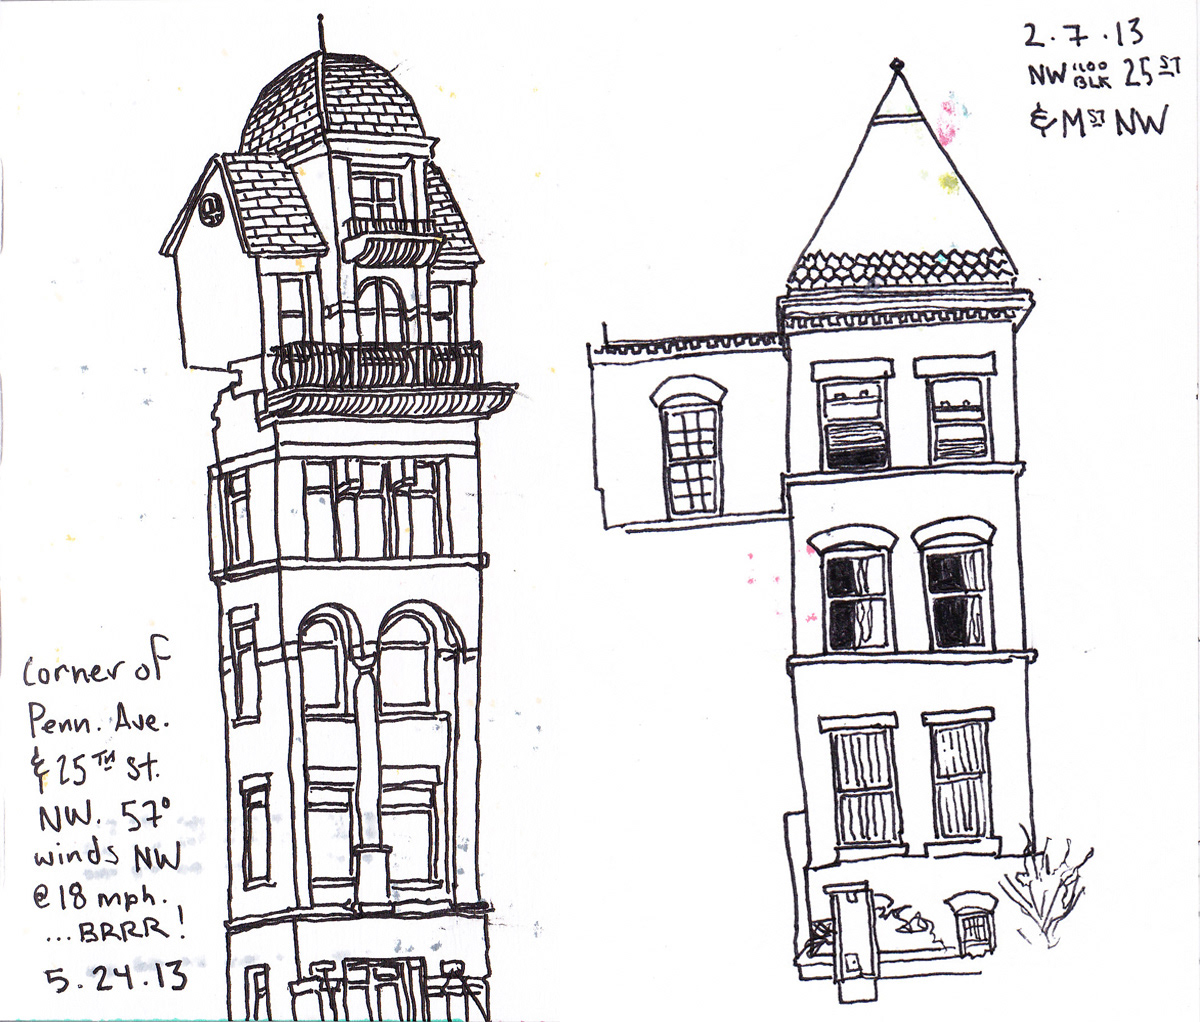 corner of
Penn. Ave.
& 25TH St.
NW. 57°
winds NW
@ 18 mph.
...BRRR!
5.24.13
2.7.13
NW 1100 BLK 25ST
& MST NW